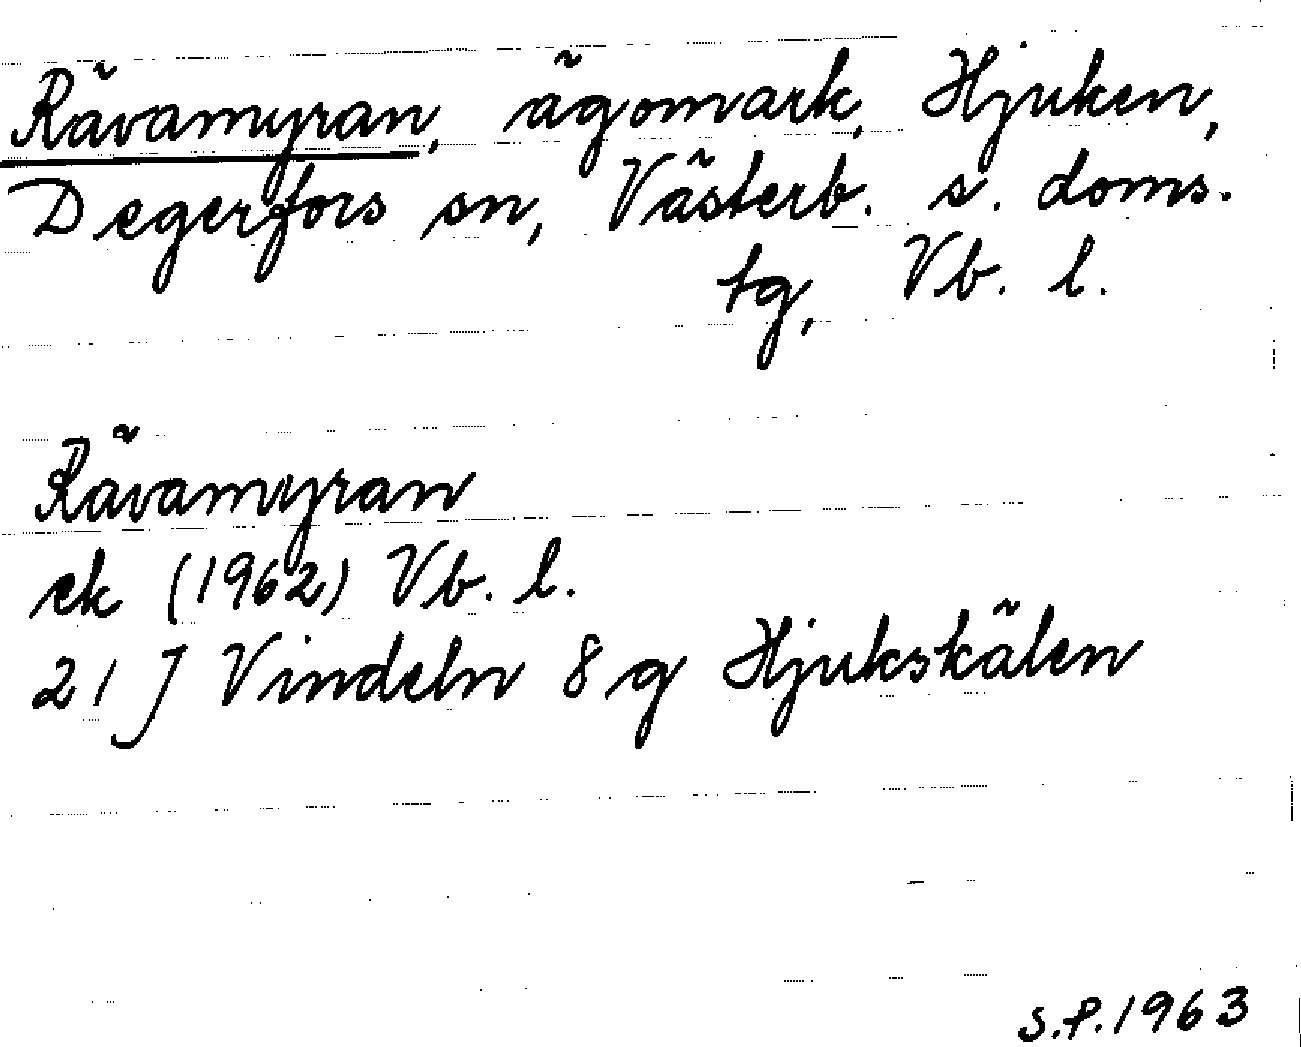 Rävamyran, ägomark, Hjuken,
Degerfors sn, Västerb. s. doms.
tg, Vb. l.
Rävamyran
ek (1962) Vb. l.
21 J Vindeln 8 g Hjukskälen
S.P. 1963